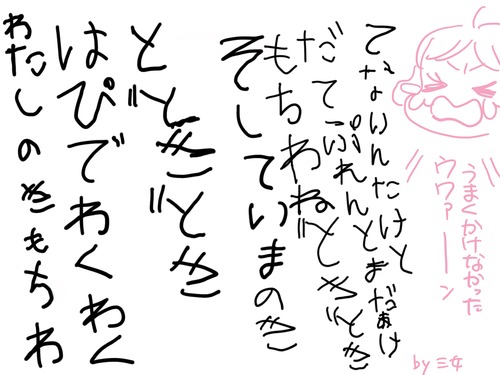 わたしのきもちわ
はぴでわくわく
とどきどき
そしていまのき
もちわねどきどき
だてぷれんとまだぁけ
てないんたけと
うまくかけなかった
ウワァーーン
by 三女